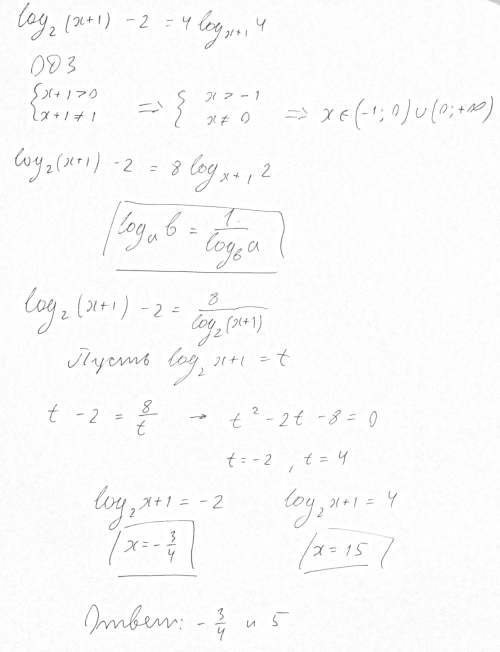 log₂(x+1) - 2 = 4 logₓ₊₁ 4
ОДЗ
{ x+1>0 x+1≠1 => { x > -1 x ≠ 0 => x ∈ (-1; 0) ∪ (0; +∞)
log₂(x+1) - 2 = 8 logₓ₊₁ 2
logₐ b = 1/log_b a
log₂(x+1) - 2 = 8/log₂(x+1)
Пусть log₂ x+1 = t
t - 2 = 8/t → t² - 2t - 8 = 0
t = -2 , t = 4
log₂ x+1 = -2 log₂ x+1 = 4
x = -3/4 x = 15
Ответ: -3/4 и 5